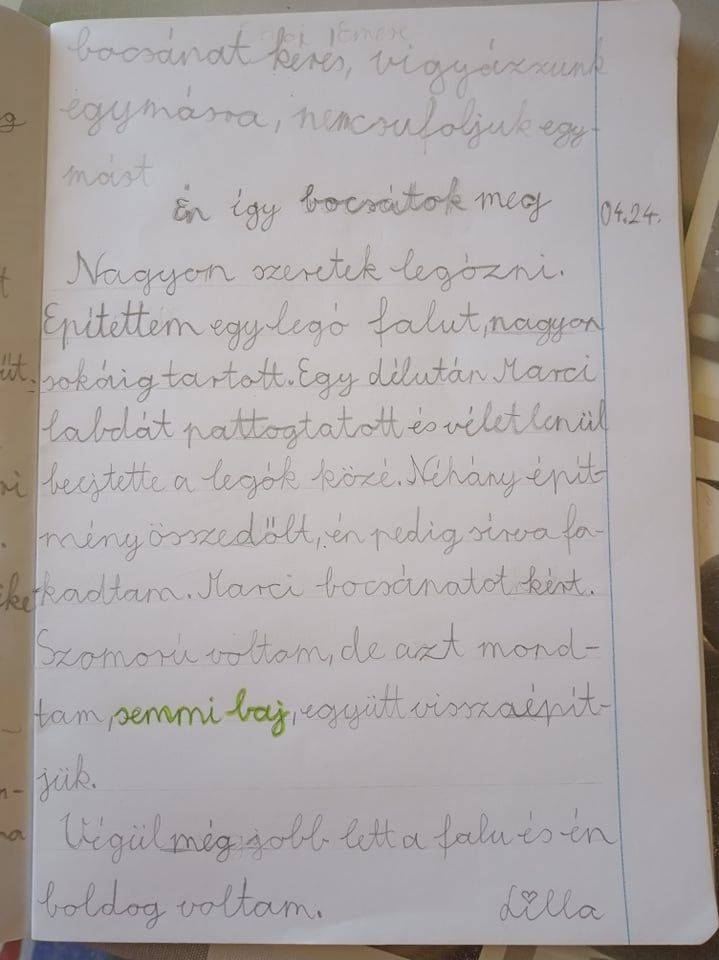 bocsánat kérés, vigyázzunk
egymásra, nemcsufoljuk egy-
mást
Én így bocsátok meg 04.24.
Nagyon szeretek legózni.
Epitettem egy legó falut, nagyon
sokáig tartott. Egy délután Marci
labdát pattogtatott és véletlenül
beejtette a legók közé. Néhány épít-
mény összedőlt, én pedig sírva fa-
kadtam. Marci bocsánatot kért.
Szomorú voltam, de azt mond-
tam, semmi baj, együtt visszaépít-
jük.
Végül még jobb lett a falu és én
boldog voltam. Lilla